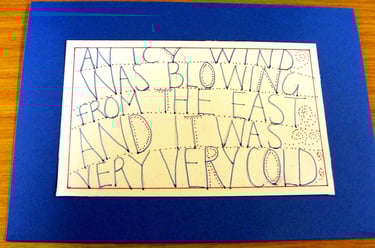 AN ICY WIND
WAS BLOWING
FROM THE EAST
AND IT WAS
VERY VERY COLD